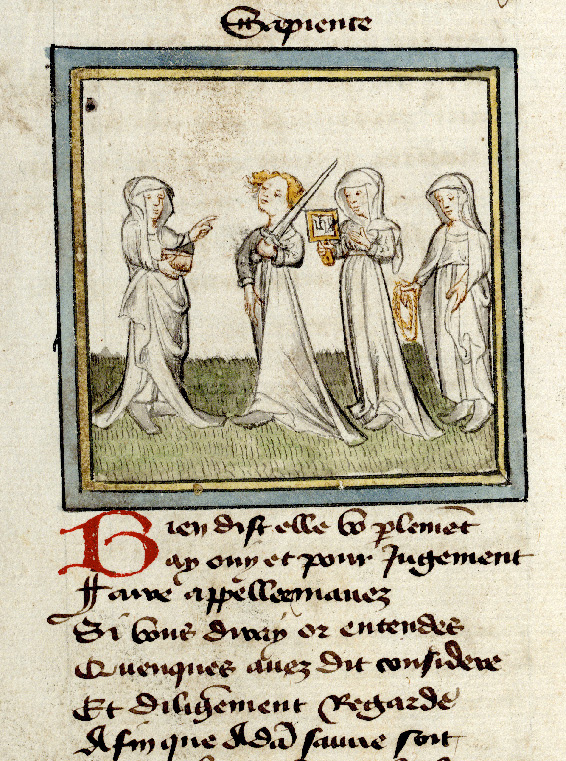 Sapiente
Bien dist elle vo plemēt
ay ouy et pour Jugement
ffaire appelle mauez
Si vous diray or entendes
Quenques auez dit considere
Et diligēment Regarde
Afin que Adā sauue soit